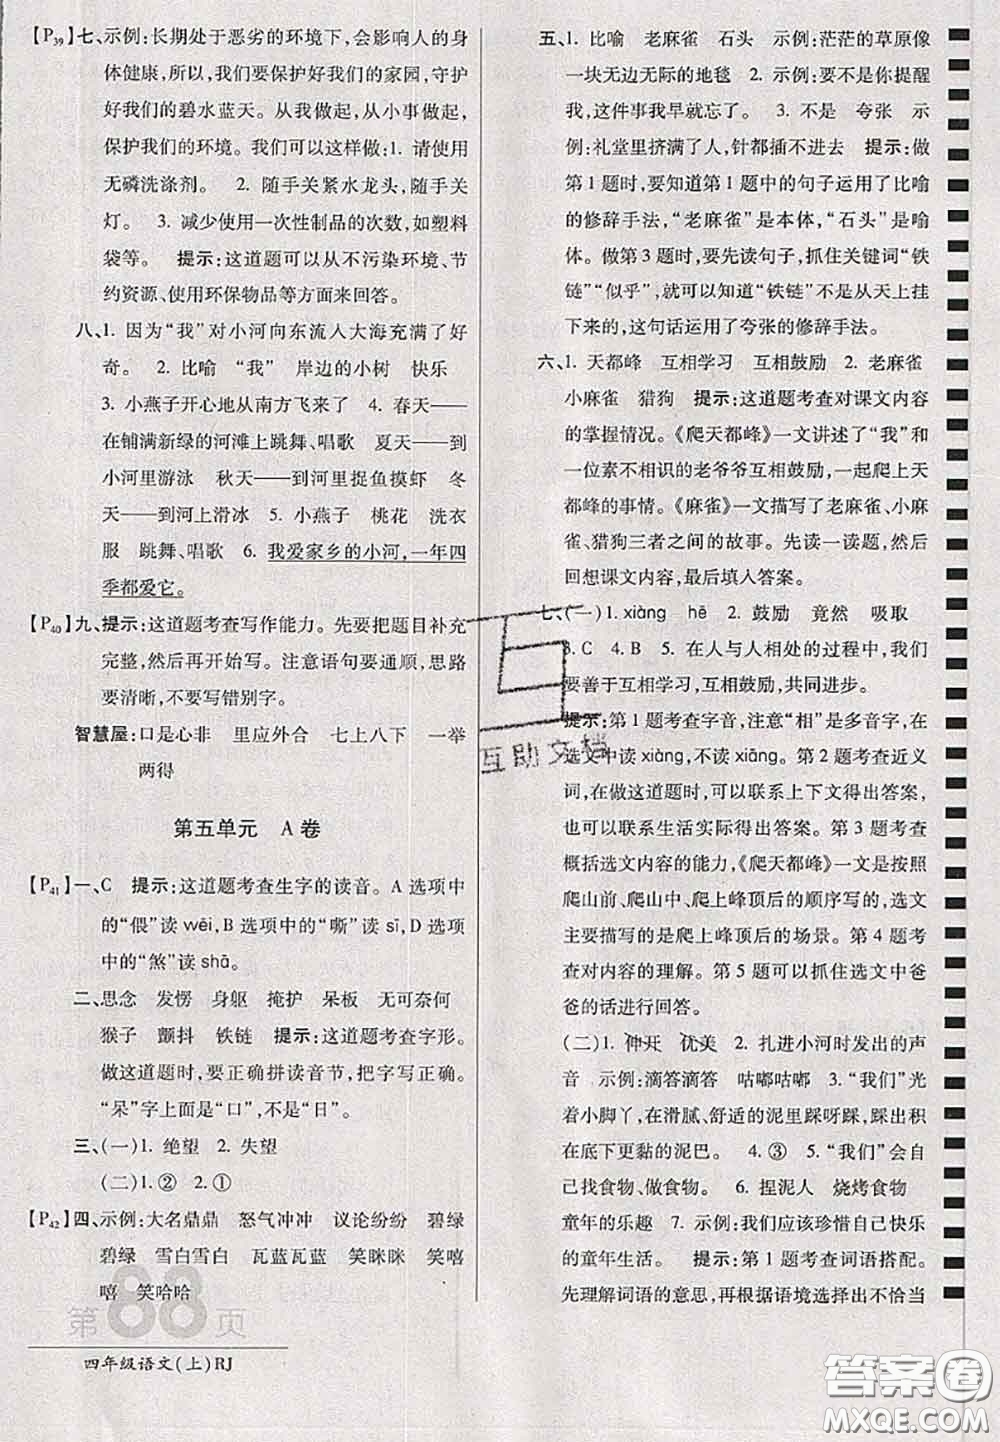 【P39】七、示例:长期处于恶劣的环境下,会影响人的身
体健康,所以,我们要保护好我们的家园,守护
好我们的碧水蓝天。从我做起,从小事做起,
保护我们的环境。我们可以这样做:1. 请使用
无磷洗涤剂。 2. 随手关紧水龙头,随手关
灯。 3. 减少使用一次性制品的次数,如塑料
袋等。 提示:这道题可以从不污染环境、节
约资源、使用环保物品等方面来回答。
八、1. 因为“我”对小河向东流入大海充满了好
奇。 2. 比喻 “我” 岸边的小树 快乐
3. 小燕子开心地从南方飞来了 4. 春天——
在铺满新绿的河滩上跳舞、唱歌 夏天——到
小河里游泳 秋天——到小河里捉鱼摸虾 冬
天——到河上滑冰 5. 小燕子 桃花 洗衣
服 跳舞、唱歌 6. 我爱家乡的小河,一年四
季都爱它。
【P40】九、提示:这道题考查写作能力。先要把题目补充
完整,然后再开始写。注意语句要通顺,思路
要清晰,不要写错别字。
智慧屋:口是心非 里应外合 七上八下 一举
两得
第五单元 A 卷
【P41】一、C 提示:这道题考查生字的读音。A 选项中
的“偎”读 wēi,B 选项中的“嘶”读 sī,D 选项
中的“煞”读 shā。
二、思念 发愣 身躯 掩护 呆板 无可奈何
猴子 颤抖 铁链 提示:这道题考查字形。
做这道题时,要正确拼读音节,把字写正确。
“呆”字上面是“口”,不是“日”。
三、(一)1. 绝望 2. 失望
(二)1. ② 2. ①
【P42】四、示例:大名鼎鼎 怒气冲冲 议论纷纷 碧绿
碧绿 雪白雪白 瓦蓝瓦蓝 笑眯眯 笑嘻
嘻 笑哈哈
第88页
四年级语文(上)RJ
五、1. 比喻 老麻雀 石头 示例:茫茫的草原像
一块无边无际的地毯 2. 示例:要不是你提醒
我,这件事我早就忘了。 3. 不是 夸张 示
例:礼堂里挤满了人,针都插不进去 提示:做
第 1 题时,要知道第 1 题中的句子运用了比喻
的修辞手法,“老麻雀”是本体,“石头”是喻
体。做第 3 题时,要先读句子,抓住关键词“铁
链”“似乎”,就可以知道“铁链”不是从天上挂
下来的,这句话运用了夸张的修辞手法。
六、1. 天都峰 互相学习 互相鼓励 2. 老麻雀
小麻雀 猎狗 提示:这道题考查对课文内容
的掌握情况。《爬天都峰》一文讲述了“我”和
一位素不相识的老爷爷互相鼓励,一起爬上天
都峰的事情。《麻雀》一文描写了老麻雀、小麻
雀、猎狗三者之间的故事。先读一读题,然后
回想课文内容,最后填入答案。
七、(一)1. xiàng hē 2. 鼓励 竟然 吸取
3. C 4. B 5. 在人与人相处的过程中,我们
要善于互相学习,互相鼓励,共同进步。
提示:第 1 题考查字音,注意“相”是多音字,在
选文中读 xiàng,不读 xiāng。第 2 题考查近义
词,在做这道题时,可以联系上下文得出答案,
也可以联系生活实际得出答案。第 3 题考查
概括选文内容的能力,《爬天都峰》一文是按照
爬山前、爬山中、爬上峰顶后的顺序写的,选文
主要描写的是爬上峰顶后的场景。第 4 题考
查对内容的理解。第 5 题可以抓住选文中爸
爸的话进行回答。
(二)1. 伸开 优美 2. 扎进小河时发出的声
音 示例:滴答滴答 咕嘟咕嘟 3. “我们”光
着小脚丫,在滑腻、舒适的泥里踩呀踩,踩出藏
在底下更黏的泥巴。 4. ③ 5. “我们”会自
己找食物、做食物。 6. 捏泥人 烧烤食物
童年的乐趣 7. 示例:我们应该珍惜自己快乐
的童年生活。 提示:第 1 题考查词语搭配。
先理解词语的意思,再根据语境选择出不恰当
互助文档
答案圈
MXQE.COM